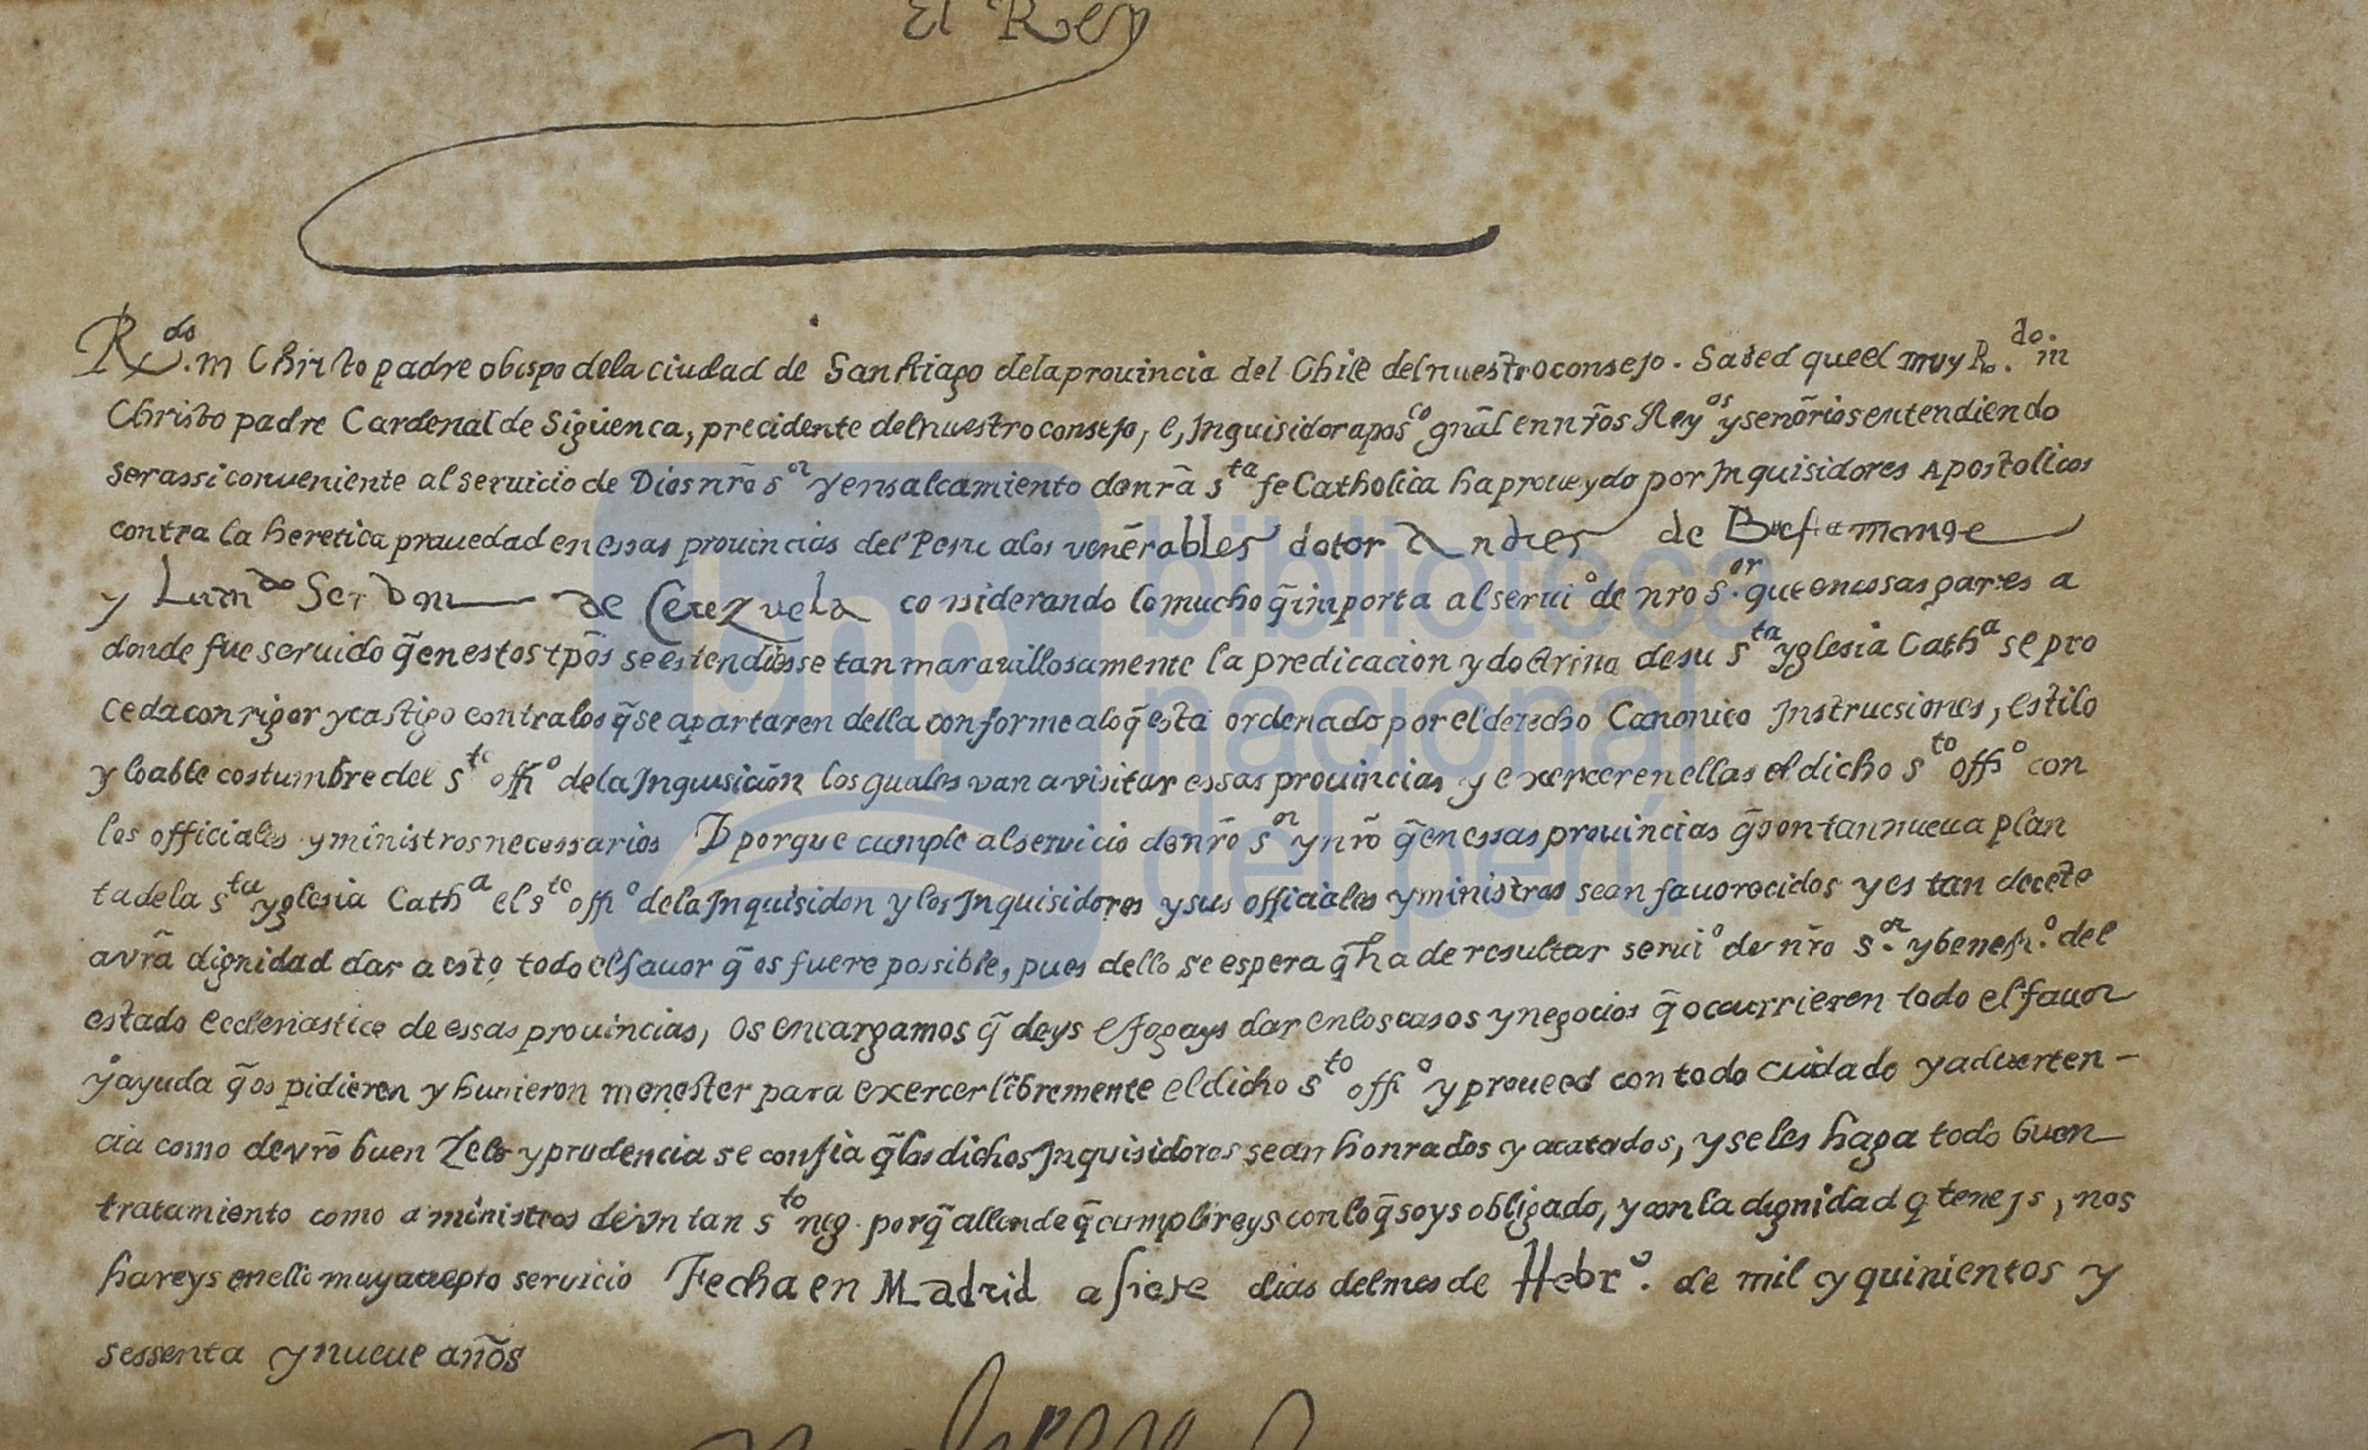 El Rey
R.do m Christo padre obispo dela ciudad de Santiago dela prouincia del Chile del nuestro consejo. Sabed que el muy R.do m
Christo padre Cardenal de Siguenca, precidente del nuestro consejo, e, Inquisidor aposco gnāl en nr̃os Reyos y senõrios entendiendo
ser assi conueniente al seruicio de Dios nr̃o sor y ensalcamiento de nr̃a sta fe Catholica ha proueydo por Inquisidores Apostolicos
contra la heretica prauedad en essas prouincias del Peru a los venẽrables dotor Andres de Bustamange
y Licendo Seruan de Cerezuela considerando lo mucho q̃ importa al serui° de nro sor. que en essas partes a
donde fue seruido q̃ en estos tpõs se estendiesse tan marauillosamente la predicacion y doctrina de su sta yglesia Catha se pro
ceda con rigor y castigo contra los q̃ se apartaren della conforme a lo q̃ esta ordenado por el derecho Canonico Instrucsiones, estilo
y loable costumbre del sto offi° de la Inquisición los quales van a visitar essas prouincias y exercer en ellas el dicho sto offi° con
los officiales y ministros necessarios Y porque cumple al seruicio de nr̃o sor y nr̃o q̃ en essas prouincias q̃ son tan nueua plan
ta de la sta yglesia Catha el sto offi° de la Inquisidon y los Inquisidores y sus officiales y ministros sean fauorecidos y es tan decẽte
a vrã dignidad dar a esto todo el fauor q̃ os fuere possible, pues dello se espera q̃ ha de resultar serui° de nr̃o sor. y benefi.° del
estado ecclesiastico de essas prouincias, os encargamos q̃ deys e fagays dar en los casos y negocios q̃ ocurrieren todo el fauor
y ayuda q̃ os pidieren y huuieron menester para exercer libremente el dicho sto offi° y proueed con todo cuidado y aduerten-
cia como de vrõ buen zelo y prudencia se confia q̃ los dichos Inquisidores sean honrados y acatados, y se les haga todo buen
tratamiento como a ministros de vn tan sto neg. porq̃ allende q̃ cumplireys con lo q̃ soys obligado, y con la dignidad q tenejs, nos
hareys en ello muy accepto servicio Fecha en Madrid a siete dias del mes de Hebr°. de mil y quinientos y
sessenta y nueue anõs
biblioteca
nacional
del perú
bnp